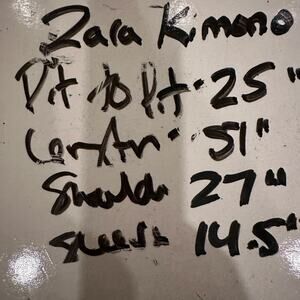 Zara Kimono
Pit to Pit - 25"
51"
Should 27"
Sleeve 14.5"